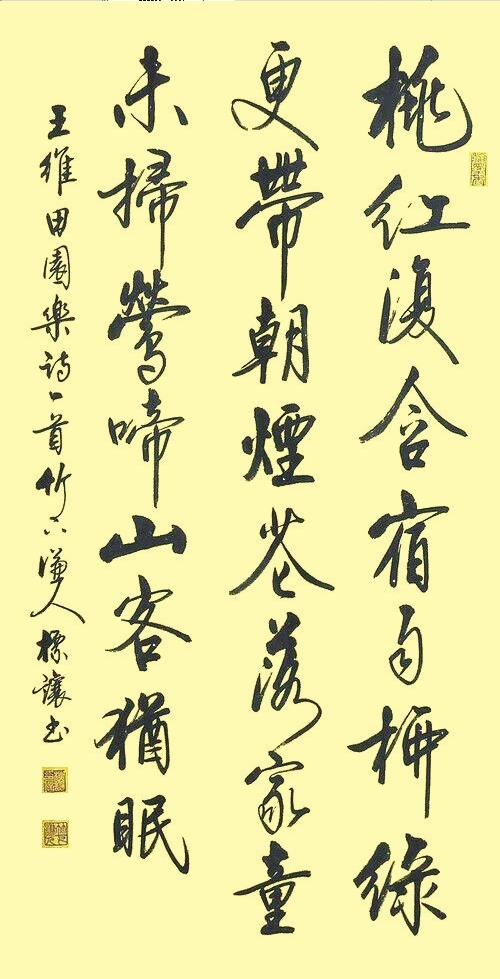 桃紅復含宿雨柳綠
更帶朝煙花落家童
未掃鶯啼山客猶眠
王維田園樂詩一首竹人讓书